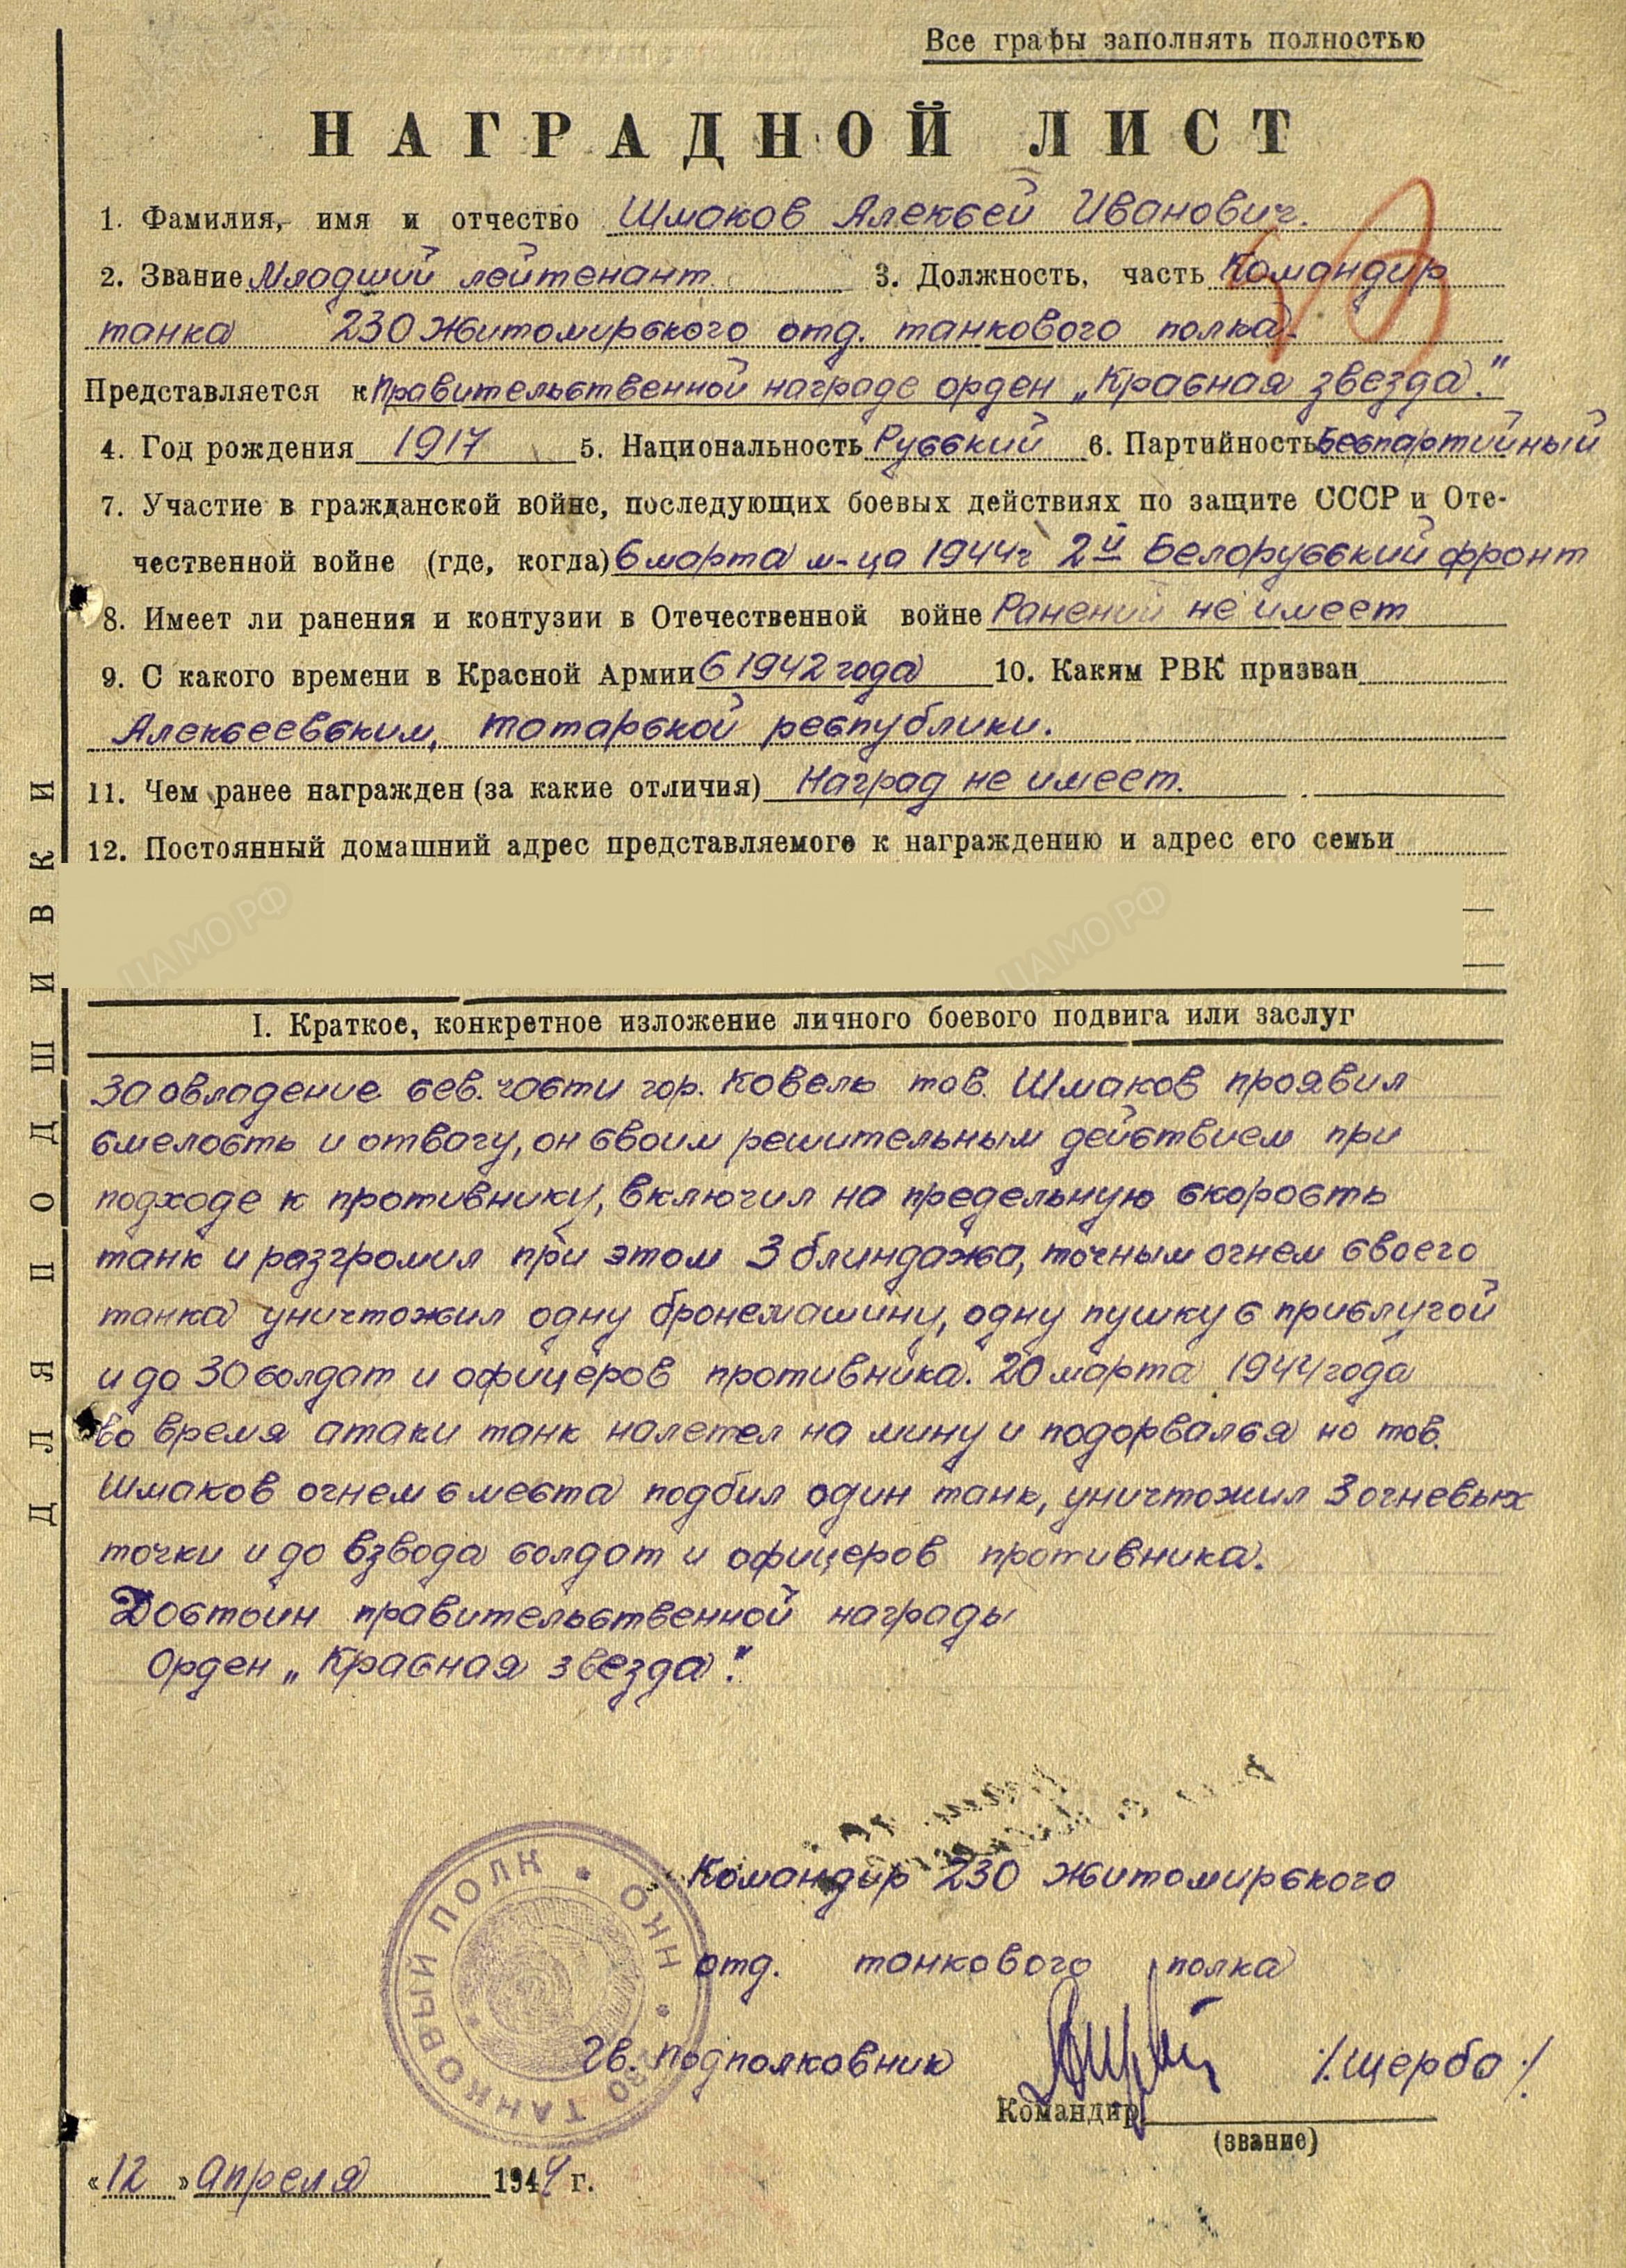 Все графы заполнять полностью
НАГРАДНОЙ ЛИСТ
1. Фамилия, имя и отчество Шмаков Алексей Иванович.
2. Звание Младший лейтенант. 3. Должность, часть Командир
танка 230 Житомирского отд. танкового полка.
Представляется к правительственной награде орден „Красная звезда."
4. Год рождения 1917 5. Национальность Русский 6. Партийность Беспартийный
7. Участие в гражданской войне, последующих боевых действиях по защите СССР и Оте-
чественной войне (где, когда) С марта м-ца 1944г 2й Белорусский фронт
8. Имеет ли ранения и контузии в Отечественной войне Ранений не имеет
9. С какого времени в Красной Армии С 1942 года 10. Каким РВК призван
Алексеевским, татарской республики.
11. Чем ранее награжден (за какие отличия) Наград не имеет.
12. Постоянный домашний адрес представляемого к награждению и адрес его семьи
ЦАМО РФ ЦАМО РФ
I. Краткое, конкретное изложение личного боевого подвига или заслуг
За овладение сев. части гор. Ковель тов. Шмаков проявил
смелость и отвагу, он своим решительным действием при
подходе к противнику, включил на предельную скорость
танк и разгромил при этом 3 блиндажа, точным огнем своего
танка уничтожил одну бронемашину, одну пушку с прислугой
и до 30 солдат и офицеров противника. 20 марта 1944 года
во время атаки танк налетел на мину и подорвался но тов.
Шмаков огнем с места подбил один танк, уничтожил 3 огневых
точки и до взвода солдат и офицеров противника.
Достоин правительственной награды
Орден „Красная звезда".
Командир 230 Житомирского
отд. танкового полка
Гв. подполковник /Щерба/
Командир
(звание)
230 ТАНКОВЫЙ ПОЛК • НКО •
«12» Апреля 1944 г.
ДЛЯ ПОДШИВКИ